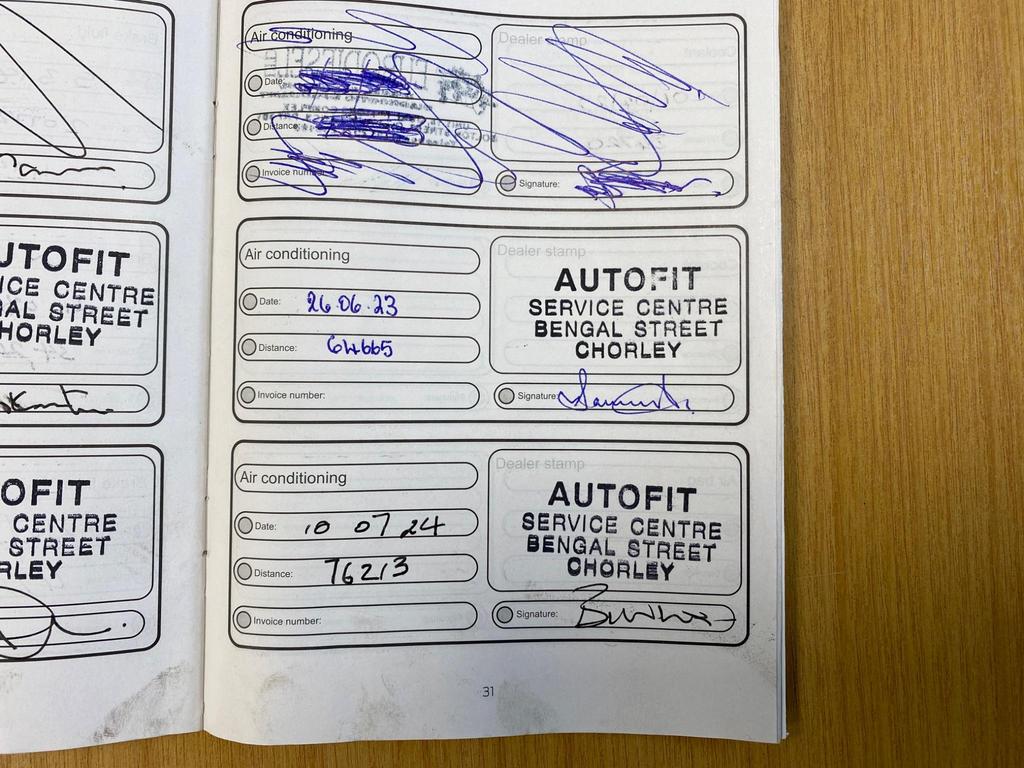 Air conditioning
Dealer stamp
Date:
Distance:
Invoice number:
Signature:
UTOFIT
ICE CENTRE
GAL STREET
HORLEY
Air conditioning
Dealer stamp
AUTOFIT
SERVICE CENTRE
BENGAL STREET
CHORLEY
Date: 26.06.23
Distance: 64665
Invoice number:
Signature:
OFIT
CENTRE
STREET
RLEY
Air conditioning
Dealer stamp
AUTOFIT
SERVICE CENTRE
BENGAL STREET
CHORLEY
Date: 10 07 24
Distance: 76213
Invoice number:
Signature:
31